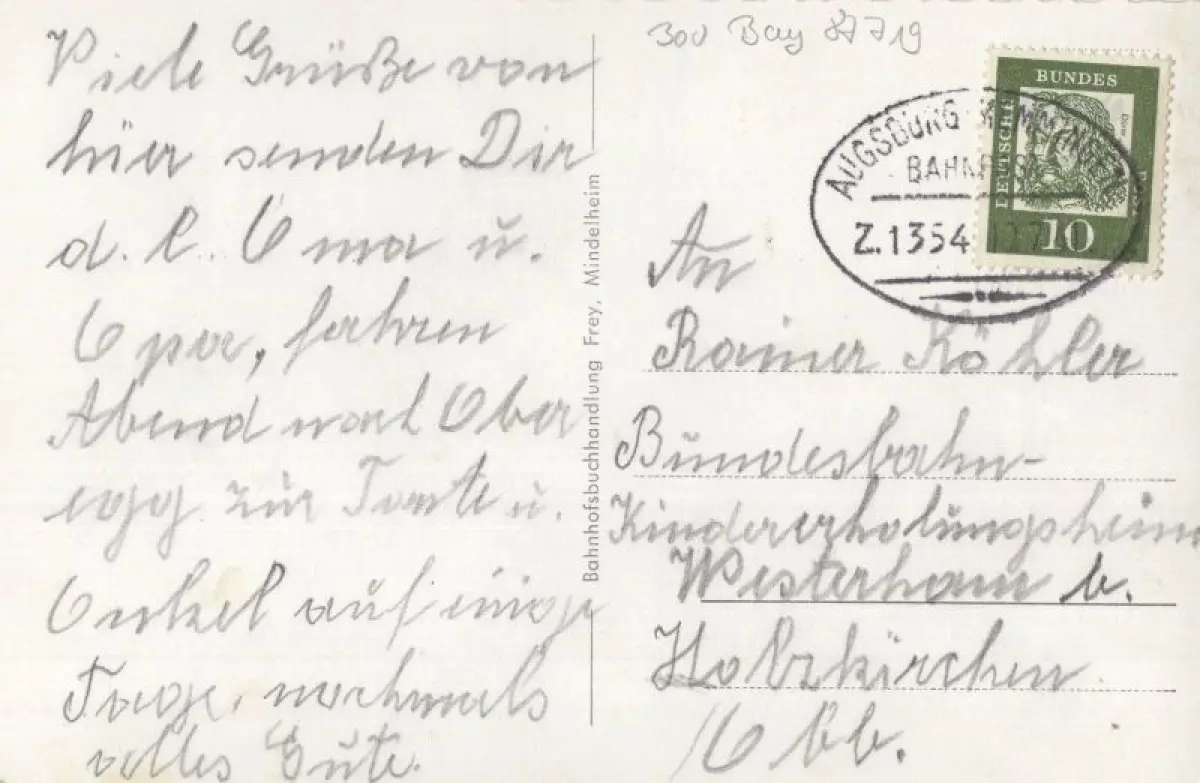 Viele Grüße von
hier senden Dir
d. l. Oma u.
Opa, fahren
Abend nach Ober
egg zur Tante u.
Onkel auf einige
Tage, nochmals
alles Gute.
Bahnhofsbuchhandlung Frey, Mindelheim
300 Bay 87719
DEUTSCHE
BUNDES
10
AUGSBURG - MEMMINGEN
BAHNPOST
Z.1354
An
Rainer Köhler
Bundesbahn-
Kindererholungsheim
Westerham b.
Holzkirchen
/Obb.